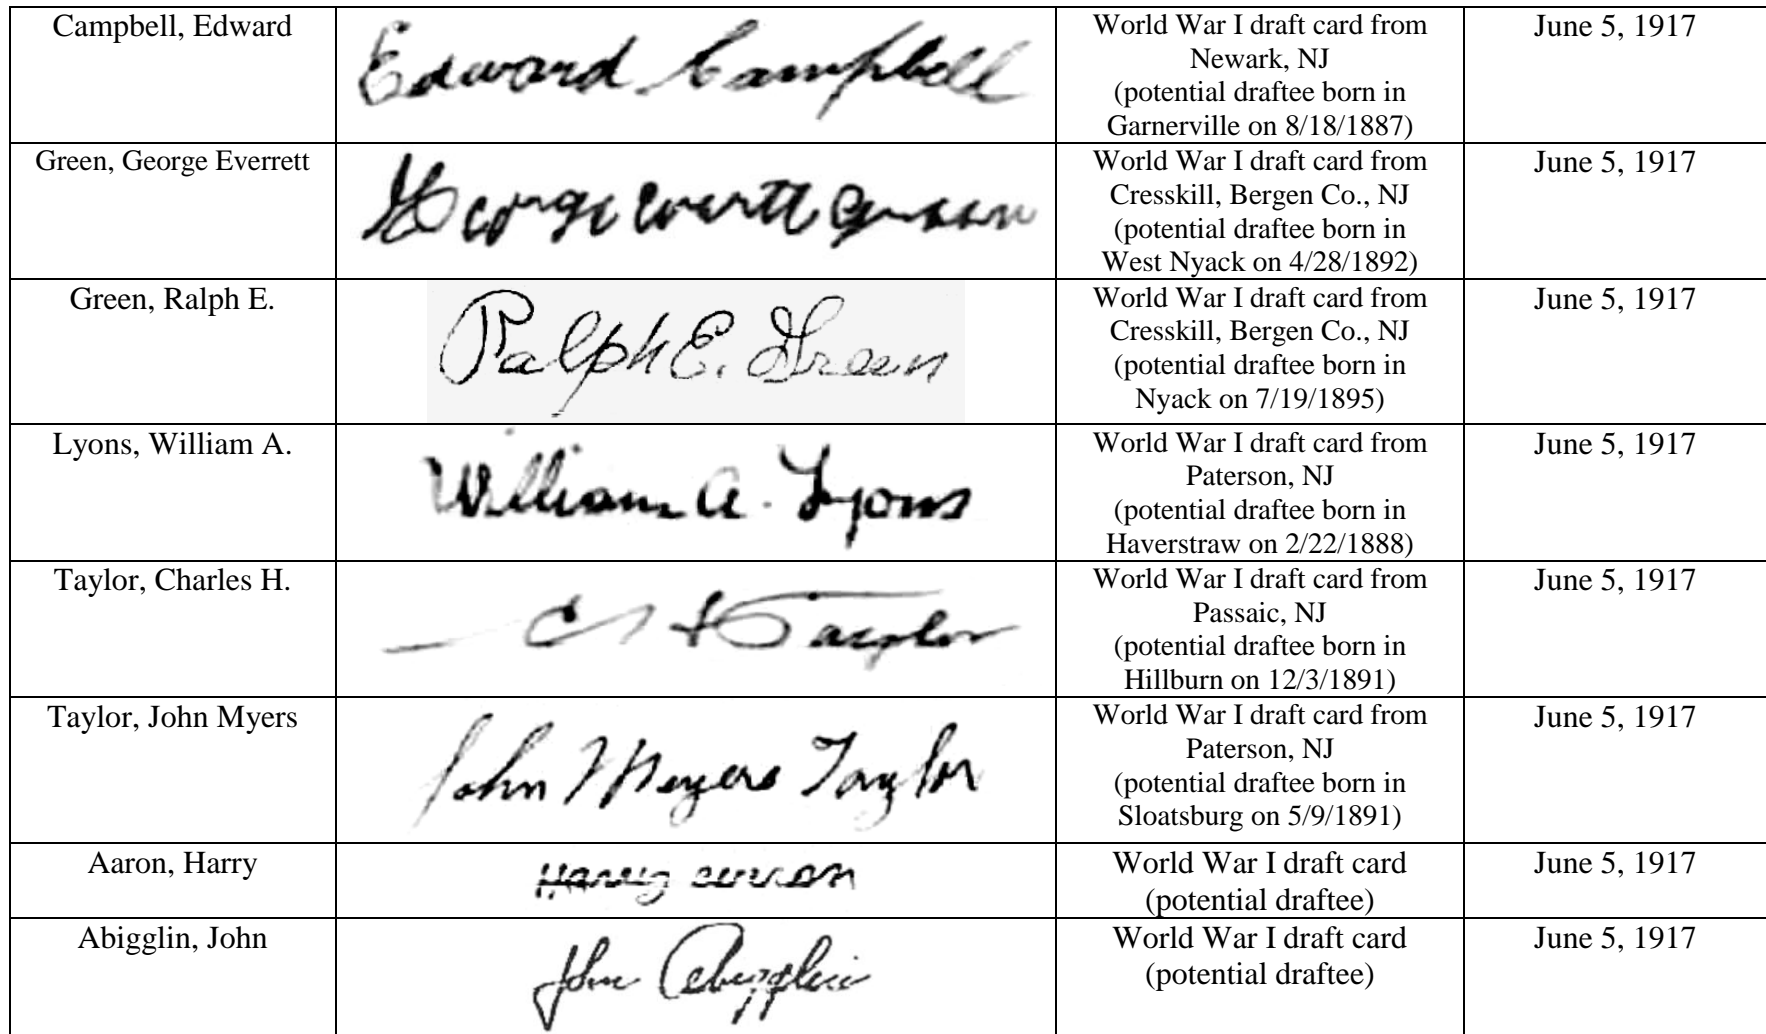 Campbell, Edward
Edward Campbell
World War I draft card from
Newark, NJ
(potential draftee born in
Garnerville on 8/18/1887)
June 5, 1917
Green, George Everrett
George Everett Green
World War I draft card from
Cresskill, Bergen Co., NJ
(potential draftee born in
West Nyack on 4/28/1892)
June 5, 1917
Green, Ralph E.
Ralph E. Green
World War I draft card from
Cresskill, Bergen Co., NJ
(potential draftee born in
Nyack on 7/19/1895)
June 5, 1917
Lyons, William A.
William A. Lyons
World War I draft card from
Paterson, NJ
(potential draftee born in
Haverstraw on 2/22/1888)
June 5, 1917
Taylor, Charles H.
C H Taylor
World War I draft card from
Passaic, NJ
(potential draftee born in
Hillburn on 12/3/1891)
June 5, 1917
Taylor, John Myers
John Meyers Taylor
World War I draft card from
Paterson, NJ
(potential draftee born in
Sloatsburg on 5/9/1891)
June 5, 1917
Aaron, Harry
Harry
World War I draft card
(potential draftee)
June 5, 1917
Abigglin, John
John Abigglin
World War I draft card
(potential draftee)
June 5, 1917